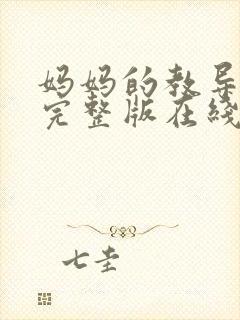 妈妈的教导
完整版在线
七圭